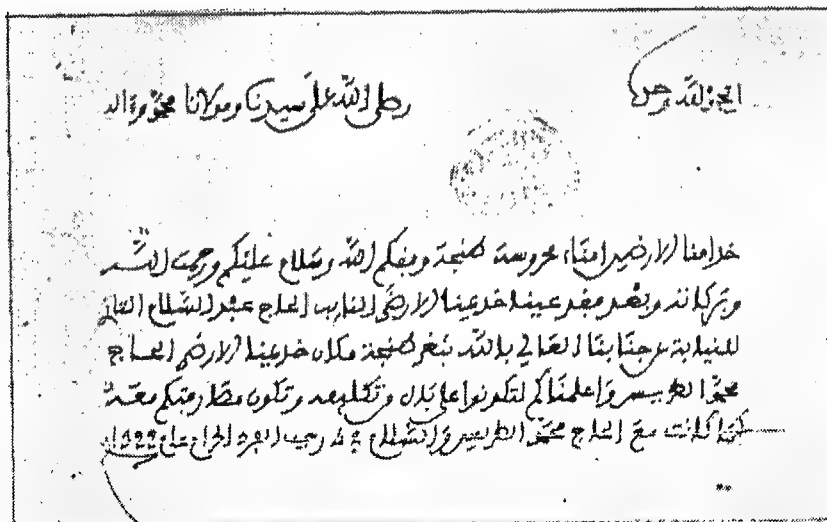 الحمد لله وحده
وصلى الله على سيدنا ومولانا محمد وءاله
خدامنا الارضين امناء محروسة طنجة وفقكم الله وسلام عليكم ورحمت الله
وبركاته وبعد فقد عينا خديمنا الارضى النايب الحاج عبد السلام التازي
للنيابة عن جنابنا العالي بالله بثغر طنجة مكان خديمنا الارضى الحاج
محمد الطريس واعلمناكم لتكونوا على بال من تكليفه وتكون مفاوضتكم معه
كما كانت مع الحاج محمد الطريس والسلام في رجب الفرد الحرام عام